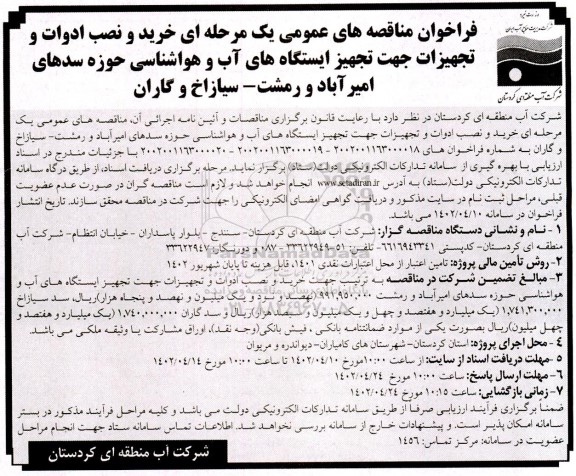 وزارت نیرو
شرکت مدیریت منابع آب ایران
شرکت آب منطقه‌ای کردستان
فراخوان مناقصه های عمومی یک مرحله ای خرید و نصب ادوات و
تجهیزات جهت تجهیز ایستگاه های آب و هواشناسی حوزه سدهای
امیرآباد و رمشت- سیازاخ و گاران
شرکت آب منطقه ای کردستان در نظر دارد با رعایت قانون برگزاری مناقصات و آئین نامه اجرائی آن، مناقصه های عمومی یک
مرحله ای خرید و نصب ادوات و تجهیزات جهت تجهیز ایستگاه های آب و هواشناسی حوزه سدهای امیرآباد و رمشت- سیازاخ
و گاران به شماره فراخوان های ۲۰۰۲۰۰۱۱۶۳۰۰۰۰۱۸ - ۲۰۰۲۰۰۱۱۶۳۰۰۰۰۱۹ - ۲۰۰۲۰۰۱۱۶۳۰۰۰۰۲۰ با جزئیات مندرج در اسناد
ارزیابی با بهره گیری از سامانه تدارکات الکترونیکی دولت(ستاد) برگزار نماید. مرحله برگزاری دریافت اسناد، از طریق درگاه سامانه
تدارکات الکترونیکی دولت(ستاد) به آدرس www.setadiran.ir انجام خواهد شد و لازم است مناقصه گران در صورت عدم عضویت
قبلی، مراحل ثبت نام در سایت مذکور و دریافت گواهی امضای الکترونیکی را جهت شرکت در مناقصه محقق سازند. تاریخ انتشار
فراخوان در سامانه ۱۴۰۲/۰۴/۱۰ می باشد.
۱ - نام و نشانی دستگاه مناقصه گزار: شرکت آب منطقه ای کردستان- سنندج - بلوار پاسداران - خیابان انتظام- شرکت آب
منطقه ای کردستان- کدپستی ۶۶۱۶۹۴۳۳۴۱- تلفن: ۵۱-۳۳۶۲۲۹۴۹ - ۰۸۷ و دورنگار: ۳۳۶۲۲۹۴۷
۲- روش تأمین مالی پروژه: تامین اعتبار از محل اعتبارات نقدی ۱۴۰۱، قابل هزینه تا پایان شهریور ۱۴۰۲
۳- مبالغ تضمین شرکت در مناقصه به ترتیب جهت خرید و نصب ادوات و تجهیزات جهت تجهیز ایستگاه های آب و
هواشناسی حوزه سدهای امیرآباد و رمشت ۹۹۱,۹۵۰,۰۰۰(نهصد و نود و یک میلیون و نهصد و پنجاه هزار)ریال، سد سیازاخ
۱,۷۴۱,۳۰۰,۰۰۰(یک میلیارد و هفتصد و چهل و یک میلیون و سیصد هزار)ریال و سد گاران ۱,۷۴۰,۰۰۰,۰۰۰(یک میلیارد و هفتصد و
چهل میلیون)ریال بصورت یکی از موارد ضمانتنامه بانکی ، فیش بانکی(وجه نقد)، اوراق مشارکت یا وثیقه ملکی می باشد.
۴- محل اجرای پروژه: استان کردستان- شهرستان های کامیاران- دیواندره و مریوان
۵-مهلت دریافت اسناد از سایت: از ساعت ۱۰:۰۰مورخ ۱۴۰۲/۰۴/۱۰ تا ساعت ۱۰:۰۰ مورخ ۱۴۰۲/۰۴/۱۴
۶-مهلت ارسال پاسخ: ساعت ۱۰:۰۰ مورخ ۱۴۰۲/۰۴/۲۴
۷- زمانی بازگشایی: ساعت ۱۰:۱۵ مورخ ۱۴۰۲/۰۴/۲۴
ضمناً برگزاری فرآیند ارزیابی صرفاً از طریق سامانه تدارکات الکترونیکی دولت می باشد و کلیه مراحل فرآیند مذکور در بستر
سامانه امکان پذیر است. و پیشنهادات خارج از سامانه بررسی نخواهد شد. اطلاعات تماس سامانه ستاد جهت انجام مراحل
عضویت در سامانه: مرکز تماس: ۱۴۵۶
شرکت آب منطقه ای کردستان